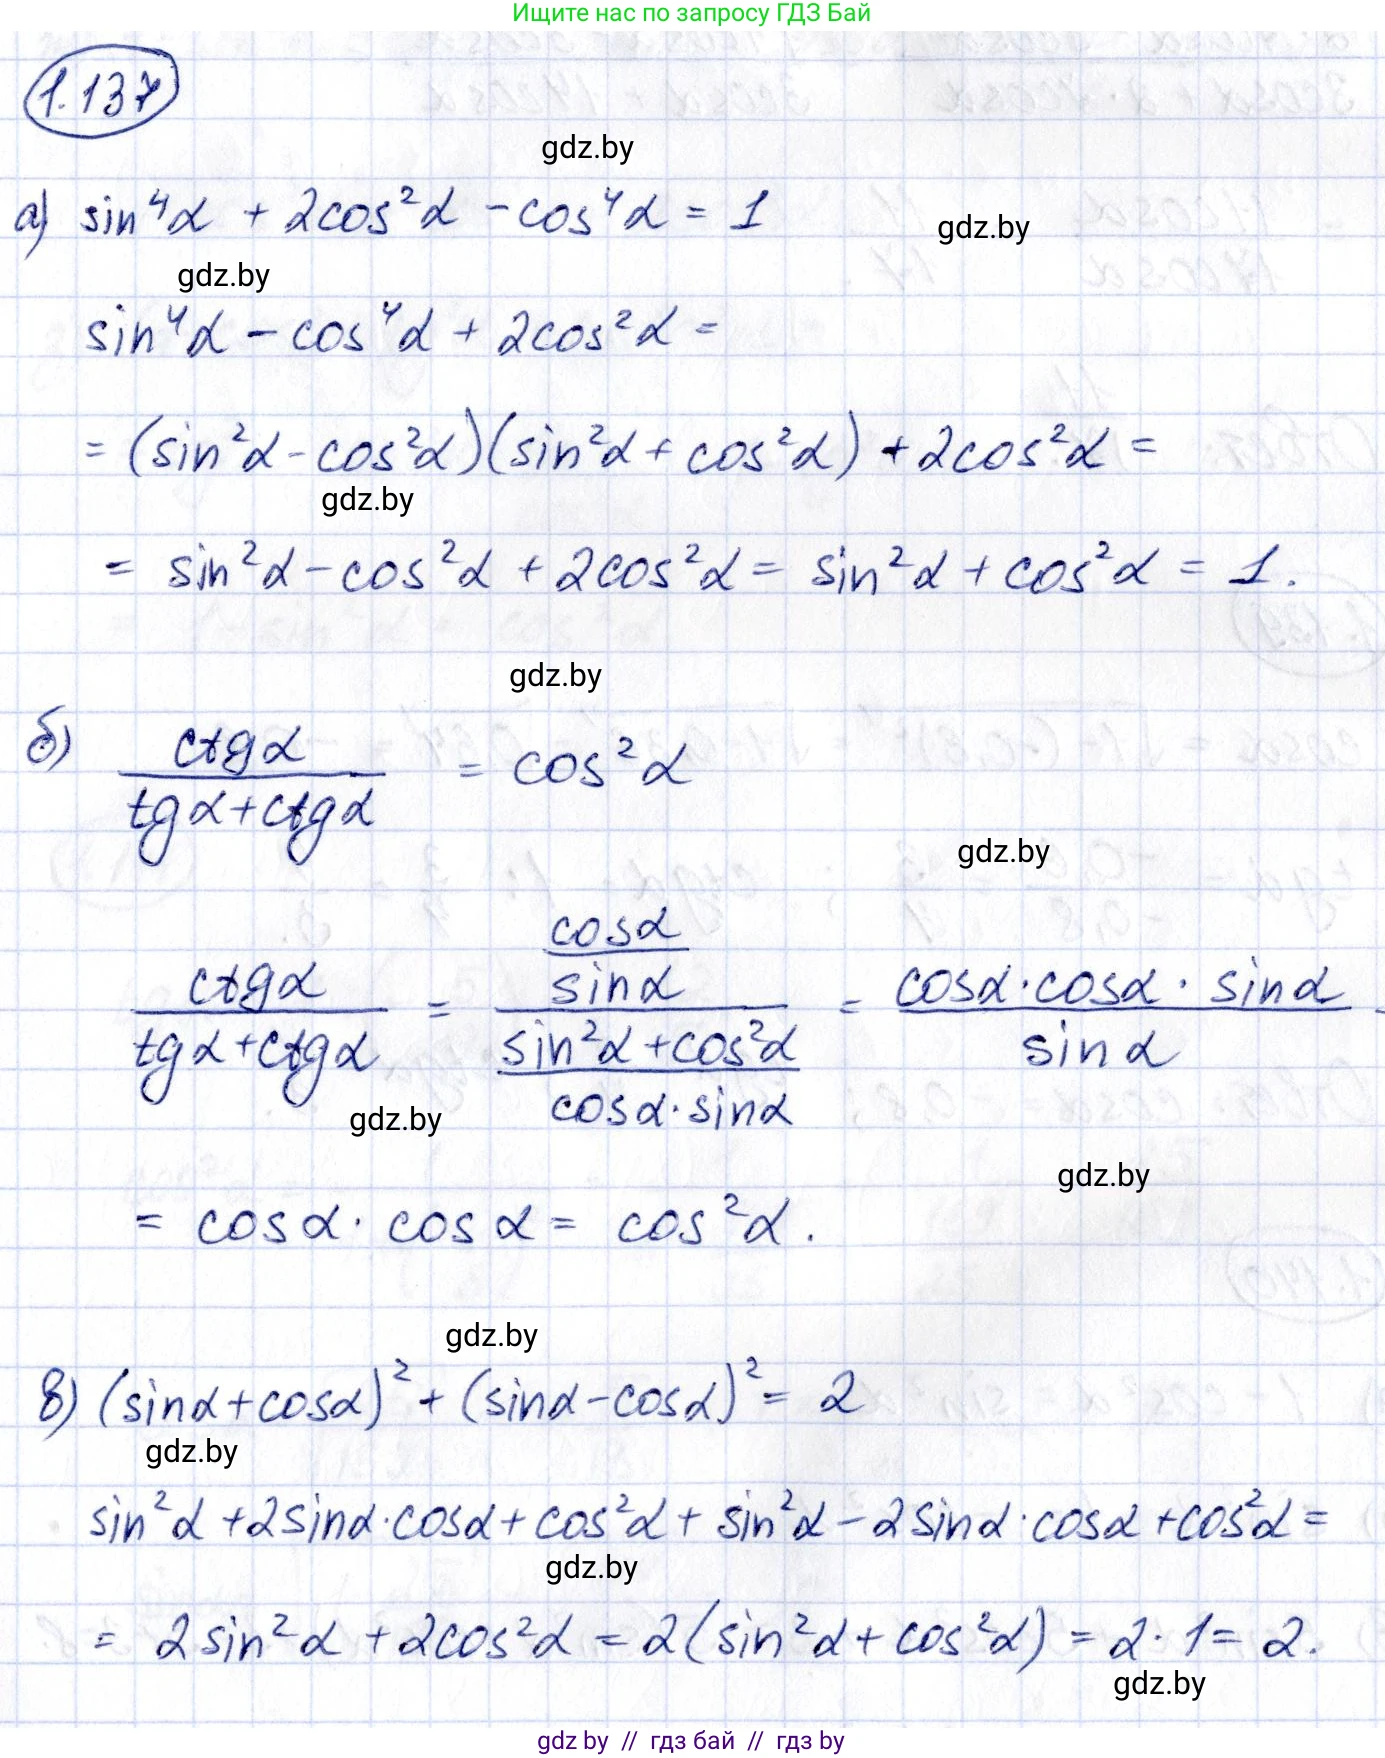 Ищите нас по запросу ГДЗ Бай
1.137
gdz.by
а) sin⁴α + 2cos²α - cos⁴α = 1
gdz.by
gdz.by
sin⁴α - cos⁴α + 2cos²α =
= (sin²α - cos²α)(sin²α + cos²α) + 2cos²α =
gdz.by
= sin²α - cos²α + 2cos²α = sin²α + cos²α = 1.
gdz.by
б) ctgα / (tgα + ctgα) = cos²α
gdz.by
ctgα / (tgα + ctgα) = (cosα / sinα) / ((sin²α + cos²α) / (cosα · sinα)) = (cosα · cosα · sinα) / sinα =
gdz.by
gdz.by
= cosα · cosα = cos²α.
gdz.by
в) (sinα + cosα)² + (sinα - cosα)² = 2
gdz.by
sin²α + 2sinα · cosα + cos²α + sin²α - 2sinα · cosα + cos²α =
gdz.by
= 2sin²α + 2cos²α = 2(sin²α + cos²α) = 2 · 1 = 2.
gdz.by
gdz.by // гдз бай // гдз by